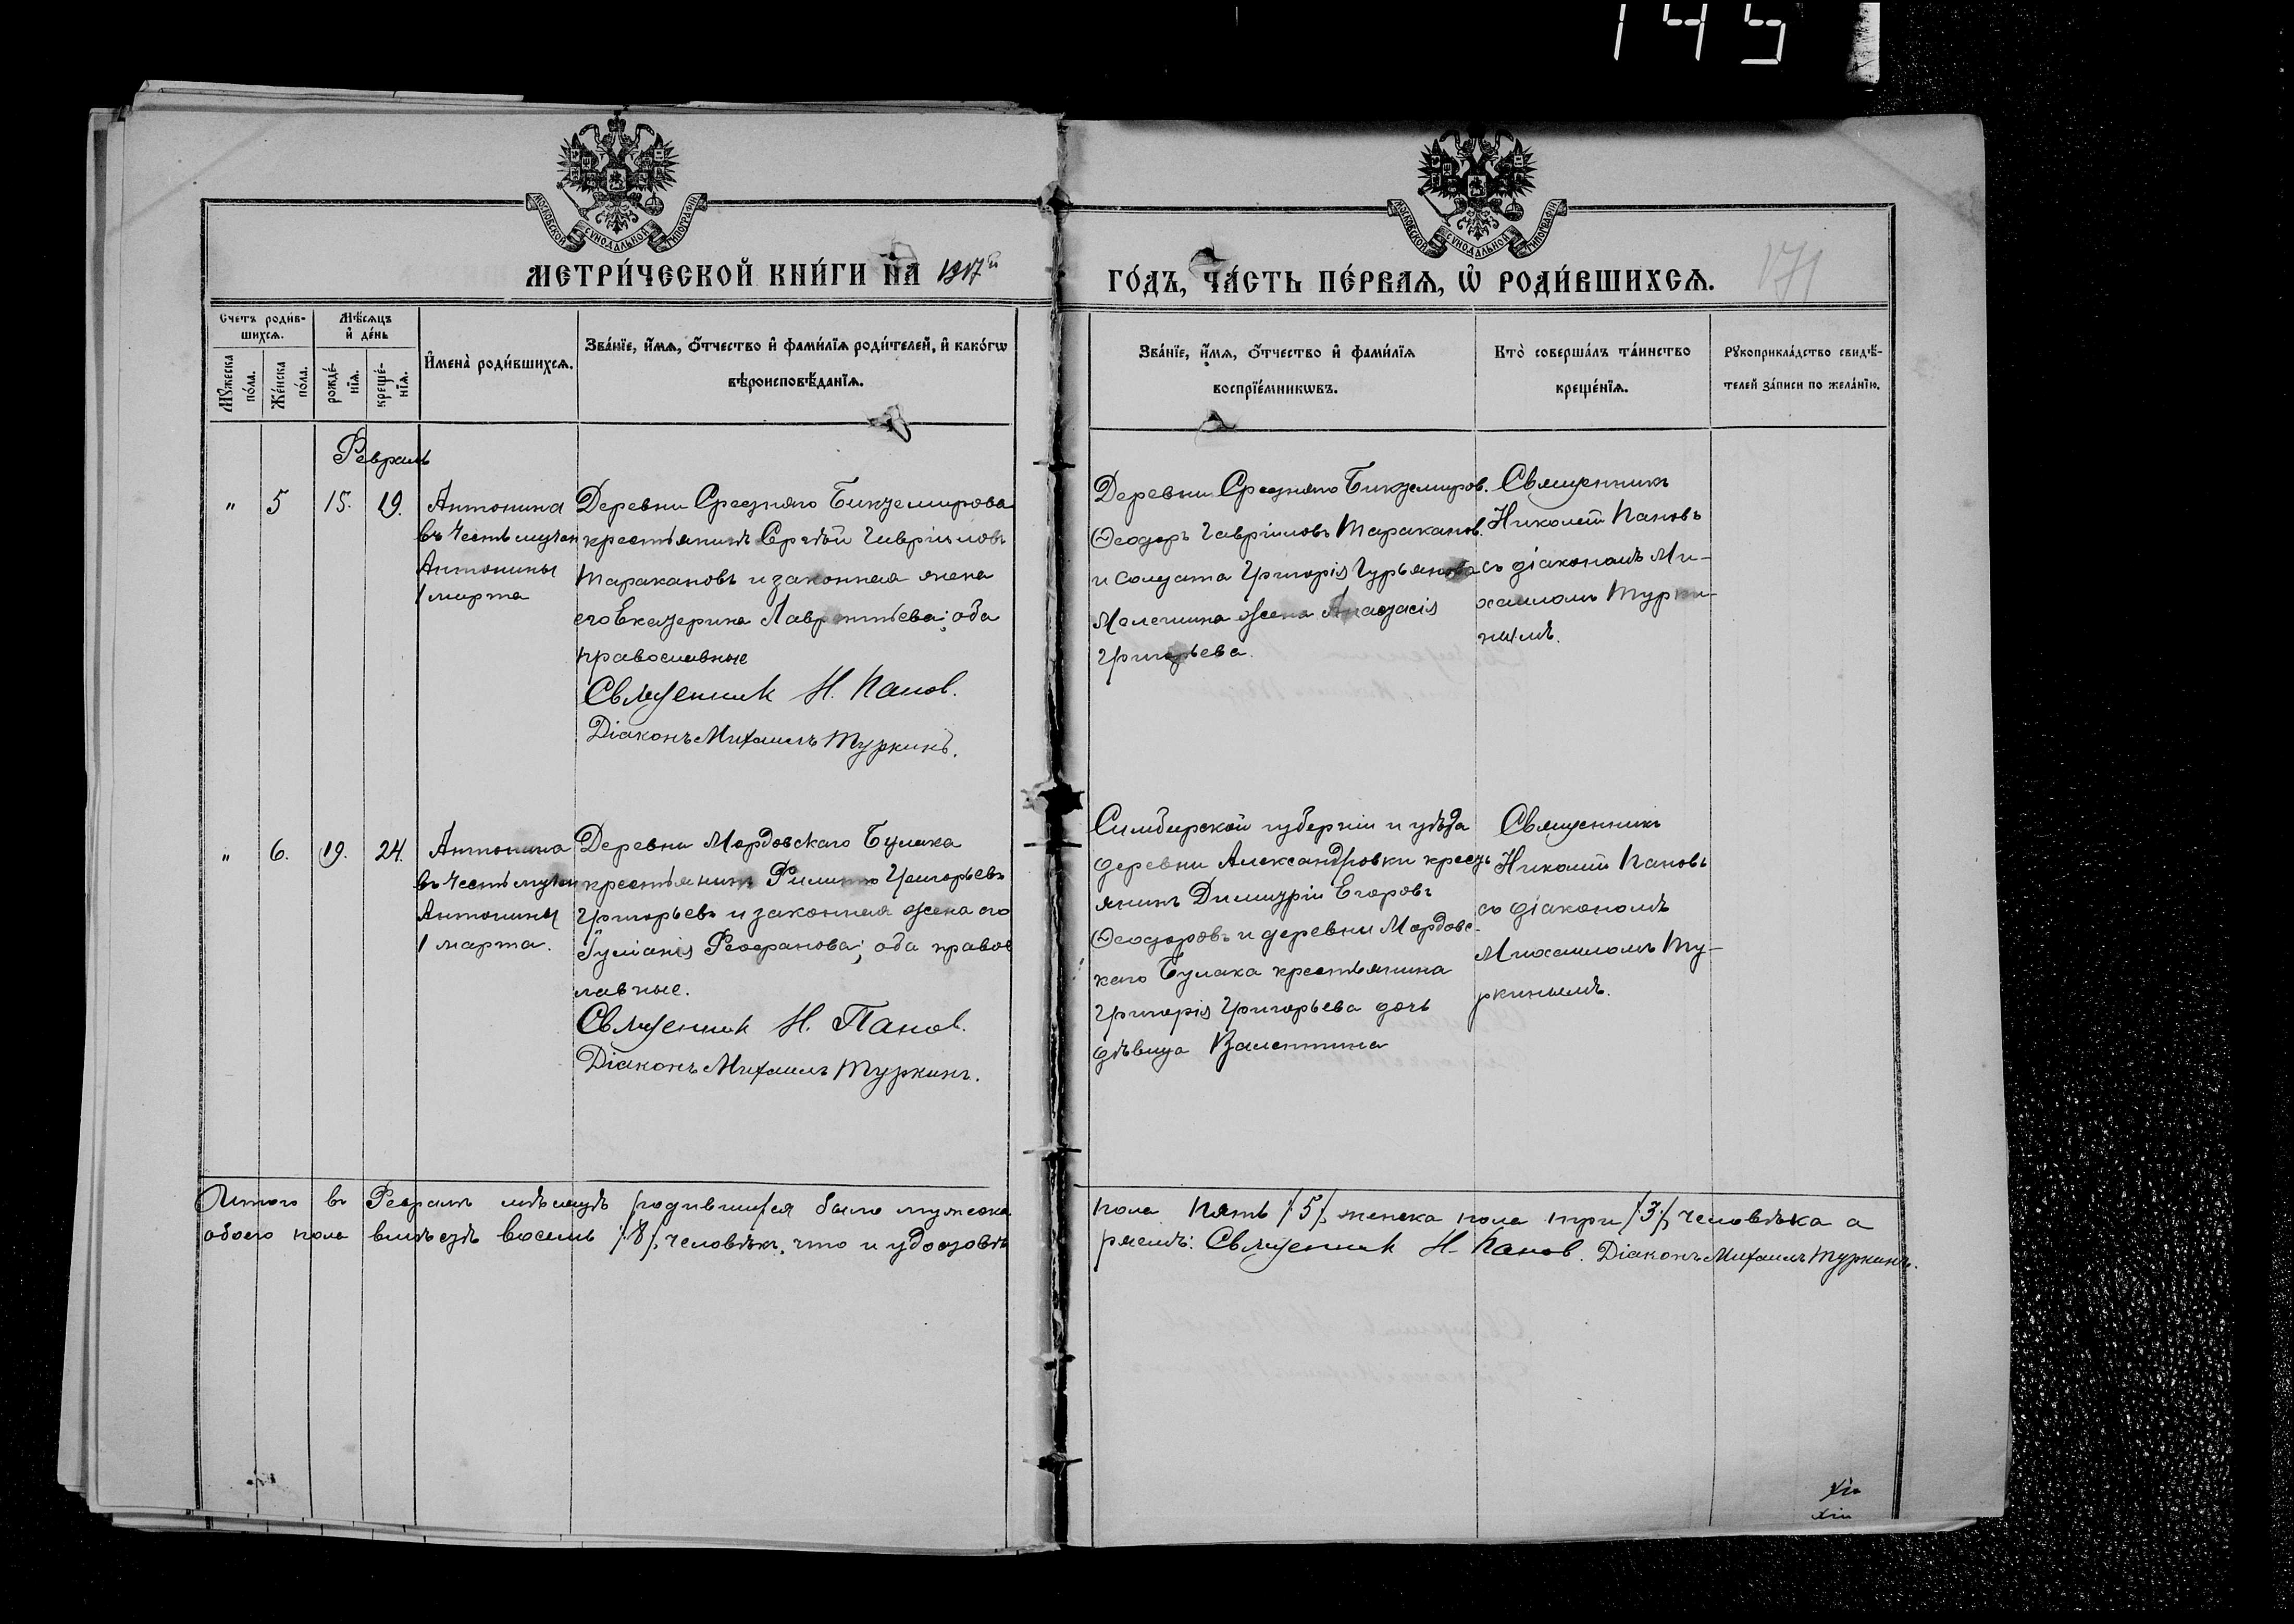 145
МОСКОВСКОЙ СѴНОДАЛЬНОЙ ТИПОГРАФІИ
МОСКОВСКОЙ СѴНОДАЛЬНОЙ ТИПОГРАФІИ
МЕТРИ́ЧЕСКОЙ КНИ́ГИ НА 1917й
ГО́ДЪ, ЧА́СТЬ ПЕ́РВАЯ, Ѡ РОДИ́ВШИХСЯ.
171
Счетъ роди́в-
шихся.
Мѣ́сяцъ
и де́нь
Мꙋжеска по́ла.
Же́нска по́ла.
рожде́-
нїя.
креще́-
нїя.
И҆мена̀ роди́вшихся.
Зва́нїе, и҆́мя, ѻ҆́тчество и҆ фами́лїя роди́телей, и҆ како́гѡ
вѣроисповѣ́данїя.
Зва́нїе, и҆́мя, ѻ҆́тчество и҆ фами́лїя
воспрїе́мникѡвъ.
Кто̀ соверша́лъ та́инство
креще́нїя.
Рꙋкоприкла́дство свидѣ́-
телей за́писи по жела́нїю.
Февраль
" 5 15. 19.
Антонина
въ честь мучен
Антонины
1 марта
Деревни Средняго Биктемирова
крестьянинъ Сергѣй Гавріиловъ
Таракановъ и законная жена
его Екатерина Лаврентьева; оба
православные
Священник Н. Панов.
Діаконъ Михаилъ Туркинъ.
Деревни Средняго Биктемиров.
Ѳеодоръ Гавріиловъ Тараканов.
и солдата Григорія Гурьянова
жена Анастасія
Григорьева.
Священникъ
Николай Пановъ
съ діакономъ Ми-
хаиломъ Турки-
нымъ.
" 6. 19. 24.
Антонина
въ честь мучен
Антонины
1 марта.
Деревни Мордовскаго Булака
крестьянинъ Филиппъ Григорьевъ
Григорьевъ и законная жена его
Іуліанія Феофанова; оба правос
лавные.
Священник Н. Панов.
Діаконъ Михаилъ Туркинъ.
Симбирской губерніи и уѣзда
деревни Александровки крест
янинъ Димитрій Егоровъ
Ѳеодоровъ и деревни Мордовс-
каго Булака крестьянина
Григорія Григорьева дочь
дѣвица Валентина
Священникъ
Николай Пановъ
съ діакономъ
Михаиломъ Ту-
ркинымъ.
Итого въ Февралѣ мѣсяцѣ родившихся было мужска
пола пять /5/, женска пола три /3/, человѣка а
обоего пола вмѣстѣ восемь /8/, человѣкъ, что и удостовѣ
ряемъ: Священник Н. Панов. Діаконъ Михаилъ Туркинъ.